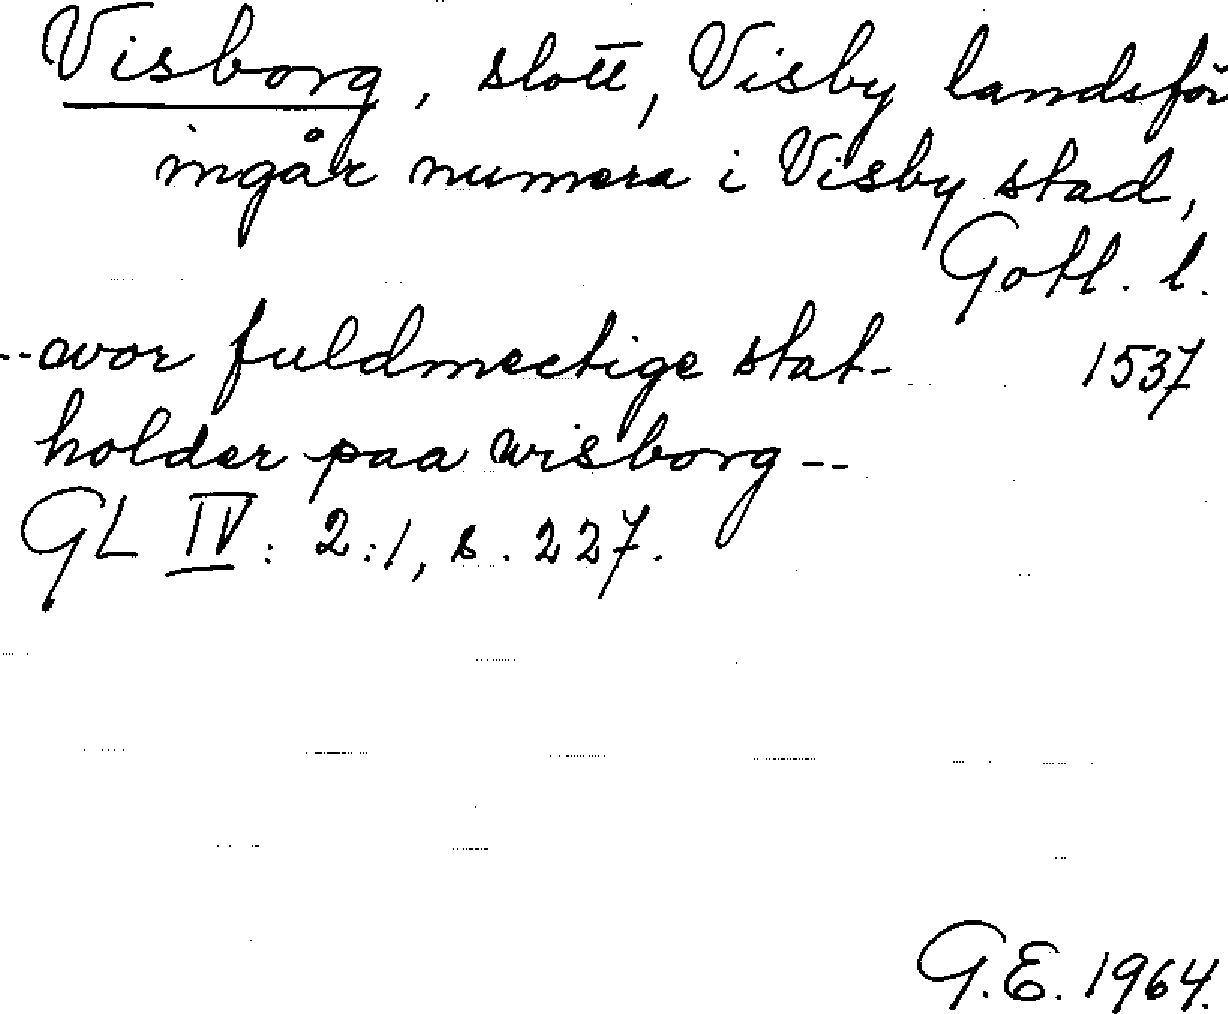 Visborg, slott, Visby landsför
ingår numera i Visby stad,
Gotl. l.
--avor fuldmectige stat- 1537
holder paa wisborg --
GL IV: 2:1, s. 227.
G.E. 1964.